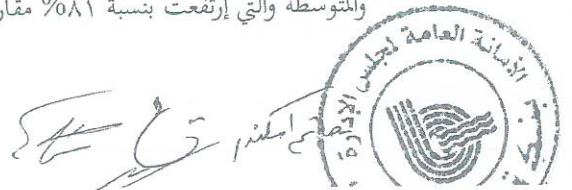 والمتوسطة والتي إرتفعت بنسبة ٥٨١% مقار
الأمانة العامة لمجلس الإدارة
بنك